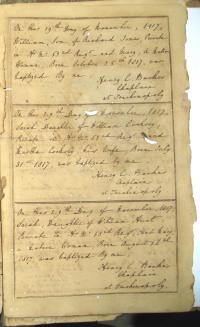 On this 29th Day of November, 1817,
William, Son of Richard Jones, Private
in H. M. 53rd Regt and Mary, a Native
Woman, Born October 25th 1817, was
baptized By me
Henry C. Banker
Chaplain
at Trichinopoly
On this 29th Day of November, 1817,
Sarah Daughter of William
Private in H. M. 53rd Regt and
Martha his Wife, Born July
31st 1817, was baptized By me
Henry C. Banker
Chaplain
at Trichinopoly
On this 29th Day of November, 1817,
Sarah, Daughter of William
Private in H. M. 53 Regt, and Mary
Native Woman, Born August
1817, was baptized By me,
Henry C. Banker
Chaplain
at Trichinopoly